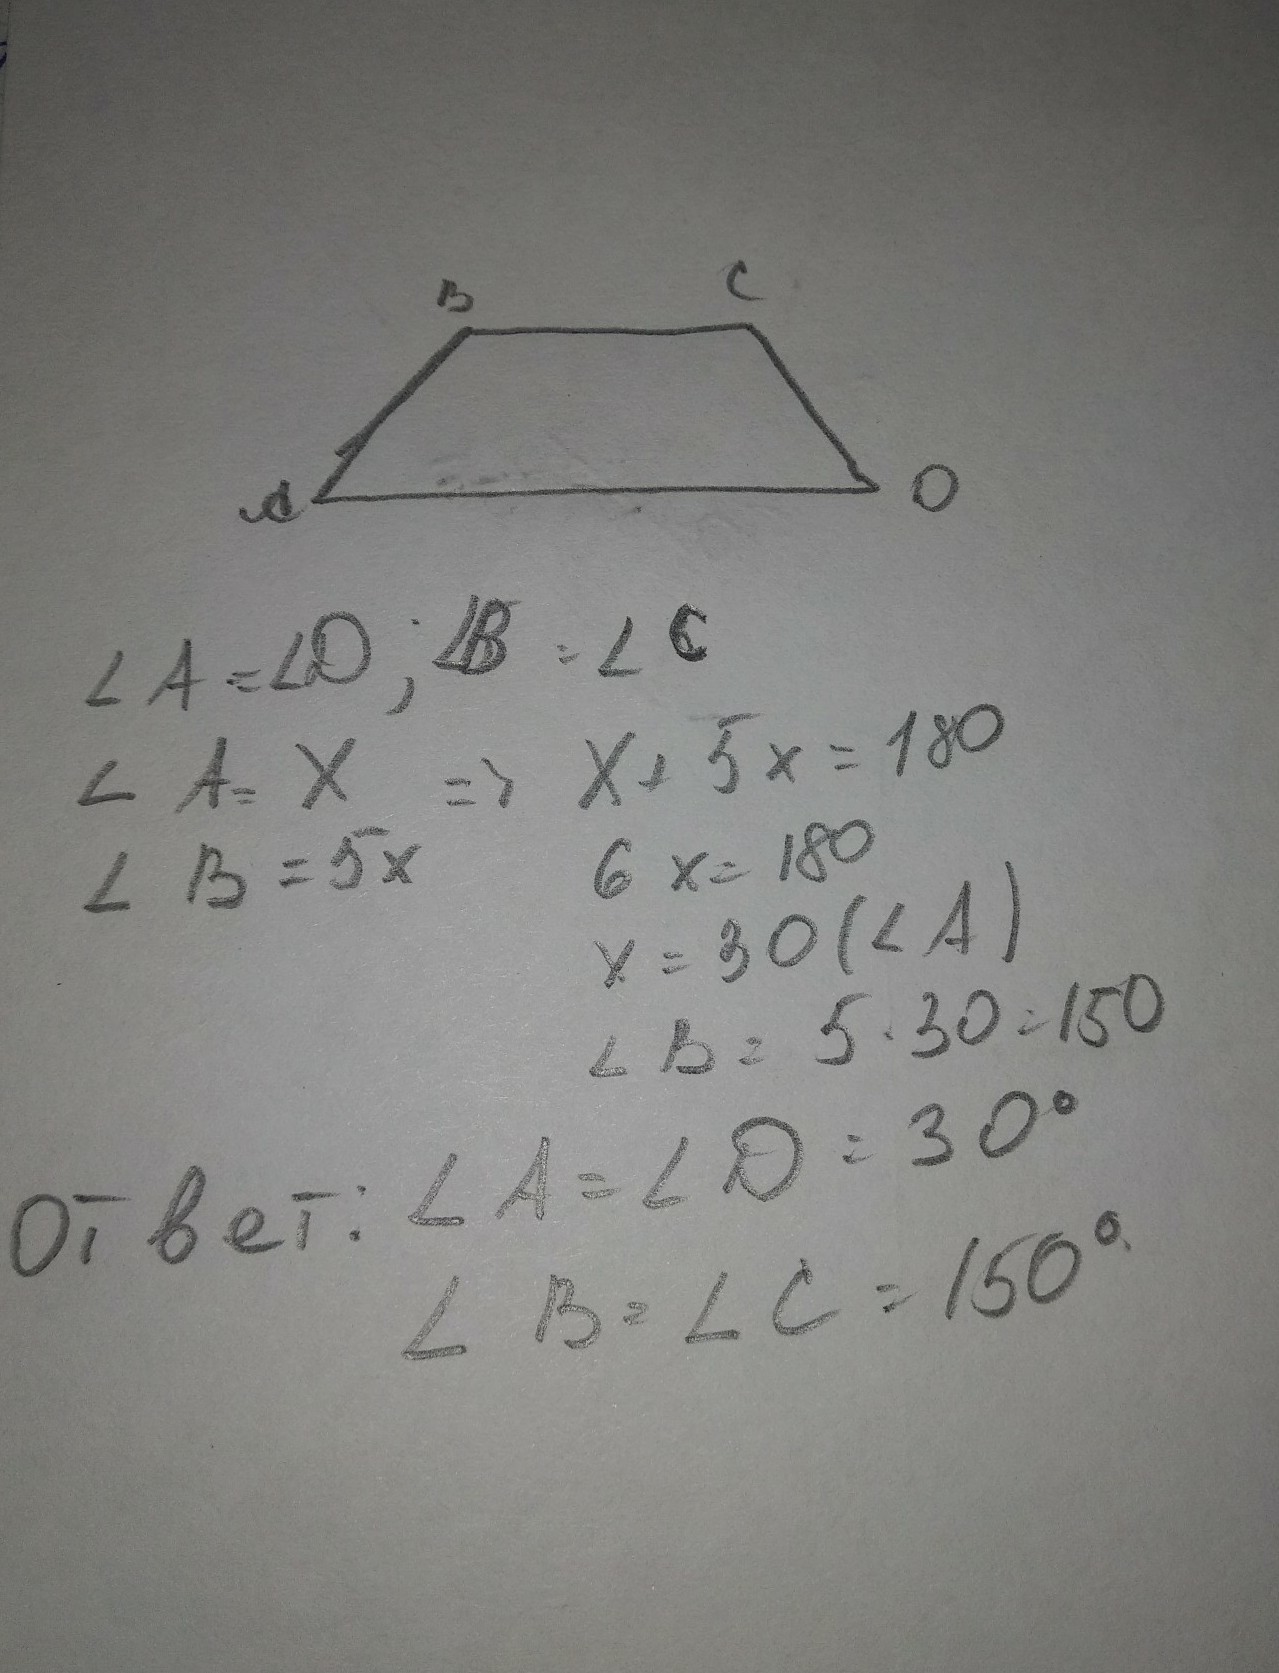 B C
A D
∠A=∠D; ∠B=∠C
∠A=X => X+5x=180
∠B=5x 6x=180
x=30(∠A)
∠B=5·30=150
Ответ: ∠A=∠D=30°
∠B=∠C=150°